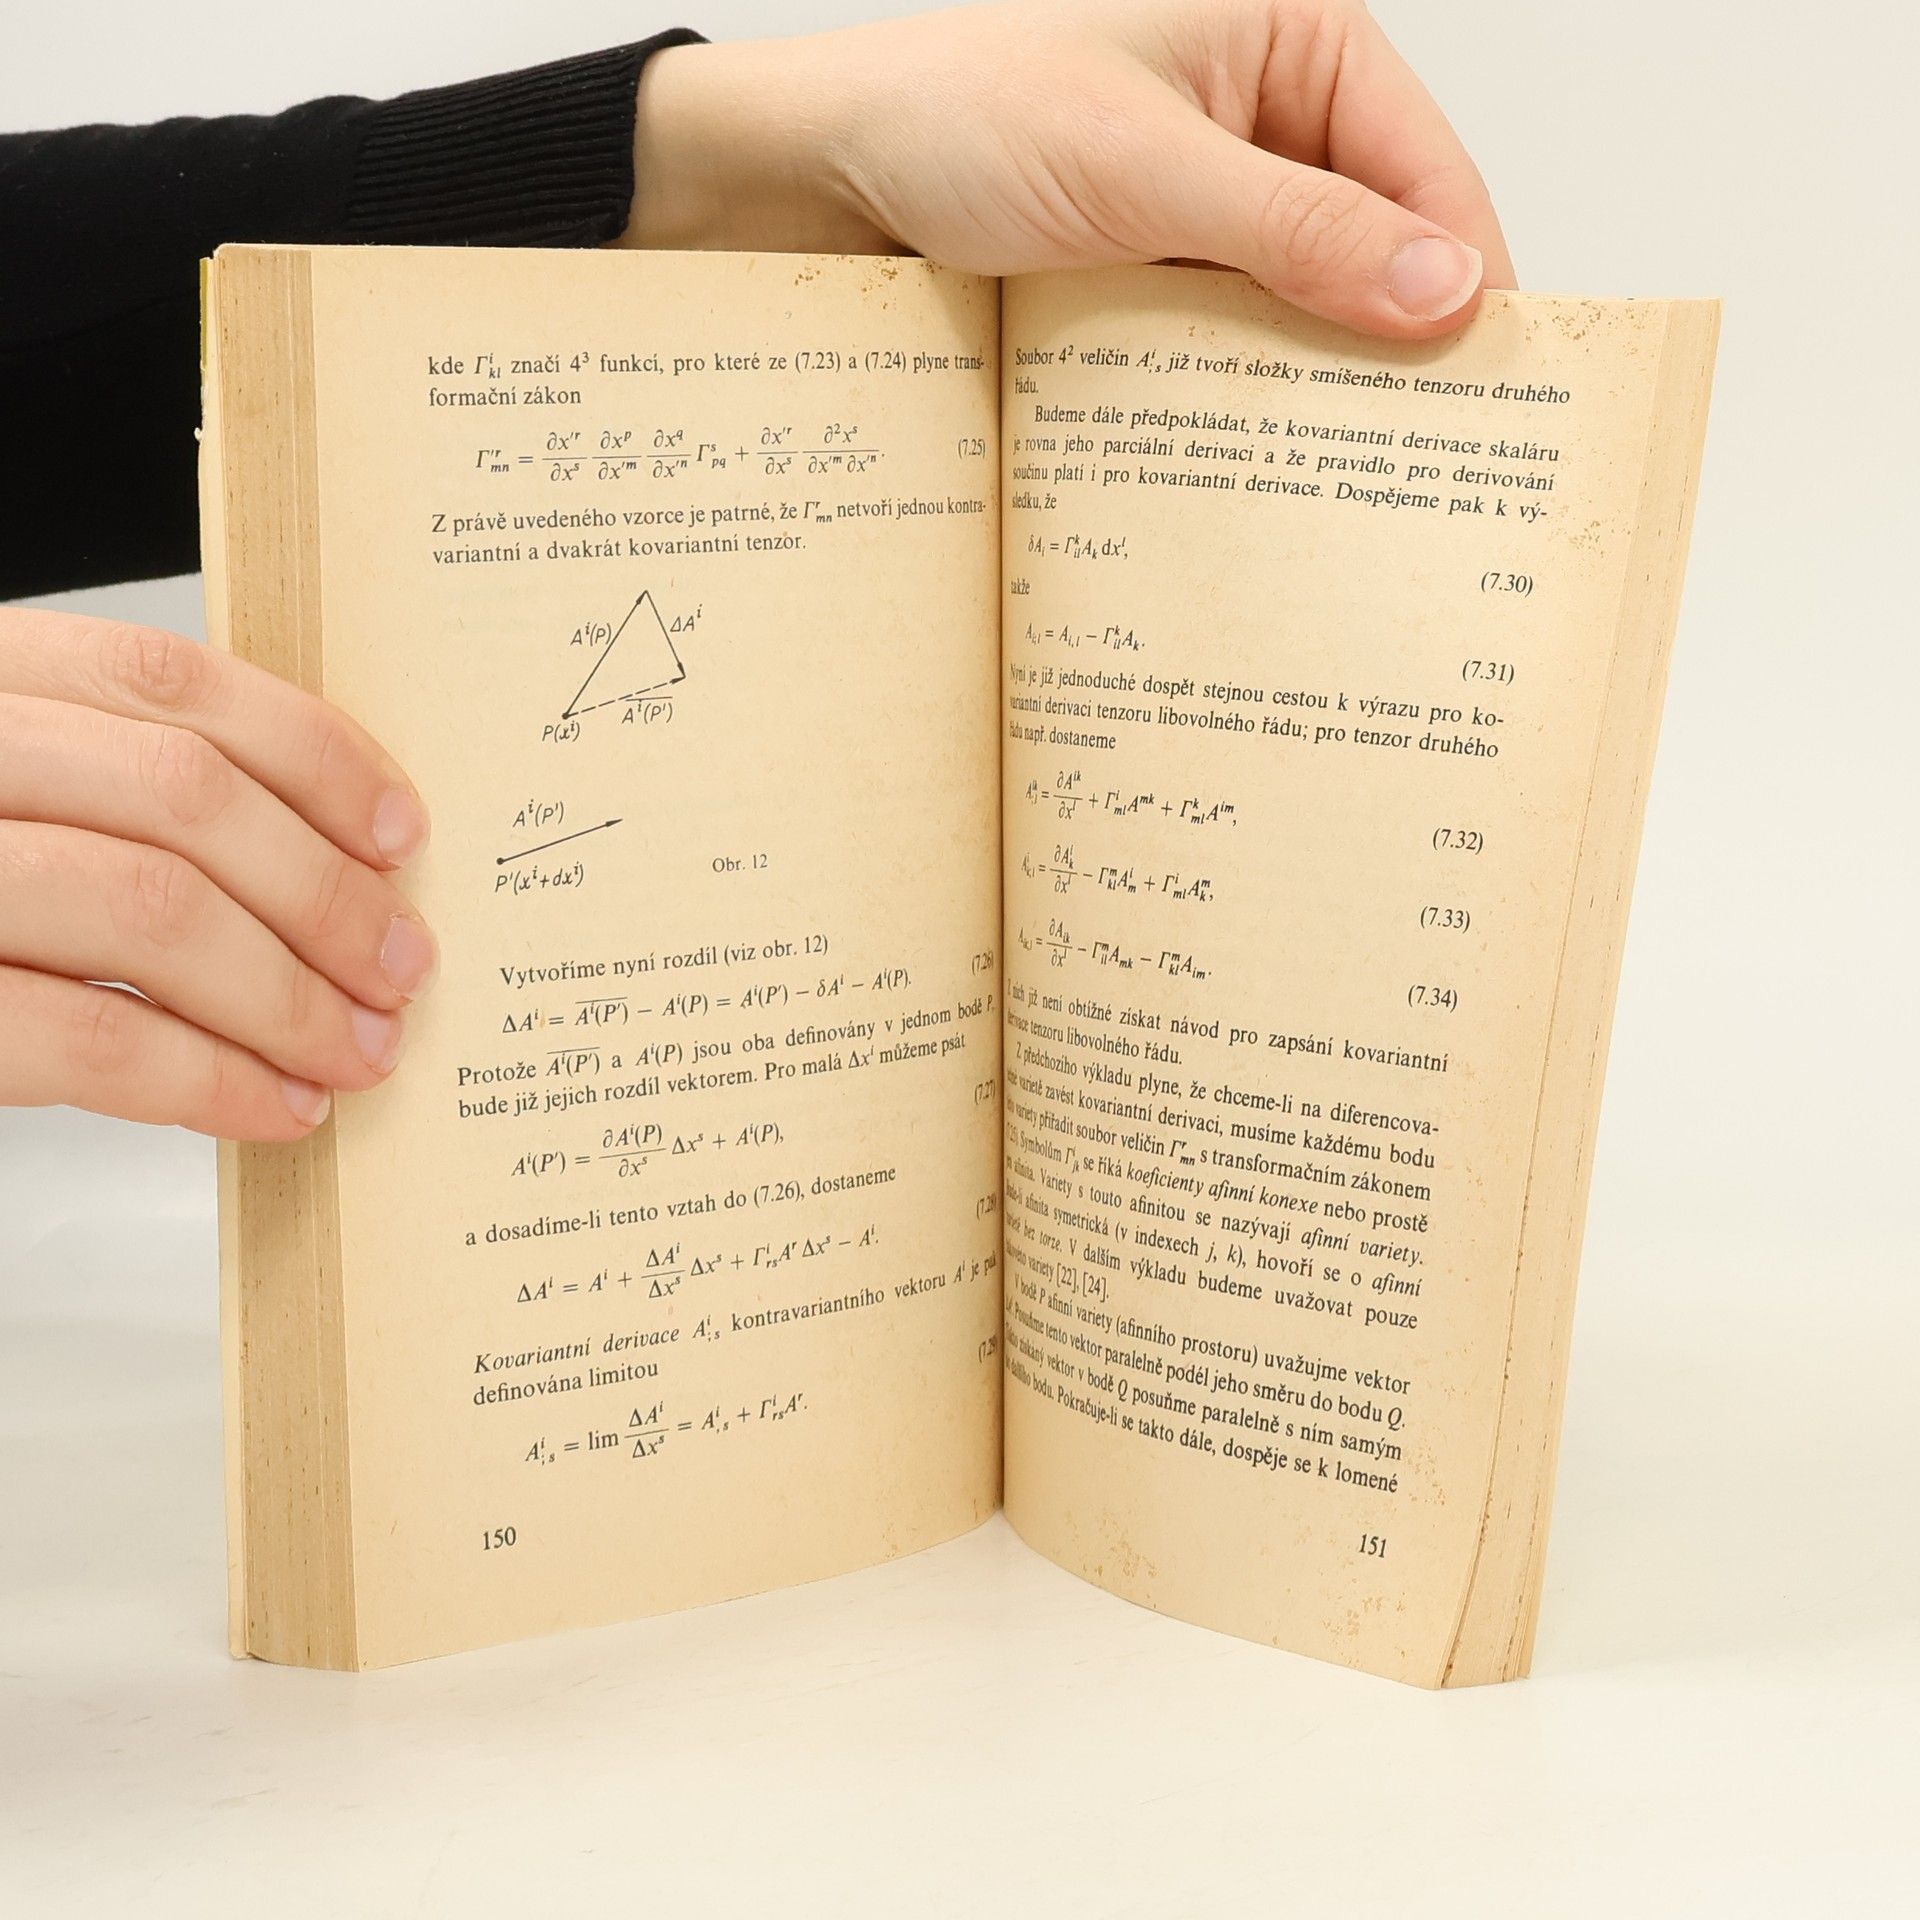 kde Γⁱₖₗ značí 4³ funkcí, pro které ze (7.23) a (7.24) plyne trans-
formační zákon
Γ′ʳₘₙ = ∂x′ʳ/∂xˢ ∂xᵖ/∂x′ᵐ ∂x^q/∂x′ⁿ Γˢ_pq + ∂x′ʳ/∂xˢ ∂²xˢ/∂x′ᵐ ∂x′ⁿ. (7.25)
Z právě uvedeného vzorce je patrné, že Γʳₘₙ netvoří jednou kontra-
variantní a dvakrát kovariantní tenzor.
Aⁱ(P)
ΔAⁱ
A̅ⁱ̅(̅P̅′̅)̅
P(xⁱ)
Aⁱ(P′)
P′(xⁱ+dxⁱ)
Obr. 12
Vytvoříme nyní rozdíl (viz obr. 12)
ΔAⁱ = A̅ⁱ̅(̅P̅′̅)̅ − Aⁱ(P) = Aⁱ(P′) − δAⁱ − Aⁱ(P). (7.26)
Protože A̅ⁱ̅(̅P̅′̅)̅ a Aⁱ(P) jsou oba definovány v jednom bodě P,
bude již jejich rozdíl vektorem. Pro malá Δxⁱ můžeme psát
Aⁱ(P′) = ∂Aⁱ(P)/∂xˢ Δxˢ + Aⁱ(P), (7.27)
a dosadíme-li tento vztah do (7.26), dostaneme
ΔAⁱ = Aⁱ + ΔAⁱ/Δxˢ Δxˢ + Γⁱᵣₛ Aʳ Δxˢ − Aⁱ. (7.28)
Kovariantní derivace Aⁱ;ₛ kontravariantního vektoru Aⁱ je
definována limitou
Aⁱ;ₛ = lim ΔAⁱ/Δxˢ = Aⁱ,ₛ + Γⁱᵣₛ Aʳ.
150
Soubor 4² veličin Aⁱ;ₛ již tvoří složky smíšeného tenzoru druhého
řádu.
Budeme dále předpokládat, že kovariantní derivace skaláru
je rovna jeho parciální derivaci a že pravidlo pro derivování
součinu platí i pro kovariantní derivace. Dospějeme pak k vý-
sledku, že
δAᵢ = Γᵏᵢₗ Aₖ dxˡ, (7.30)
takže
Aᵢ;ₗ = Aᵢ,ₗ − Γᵏᵢₗ Aₖ. (7.31)
Nyní je již jednoduché dospět stejnou cestou k výrazu pro ko-
variantní derivaci tenzoru libovolného řádu; pro tenzor druhého
řádu např. dostaneme
= ∂Aⁱᵏ/∂xˡ + Γⁱₘₗ Aᵐᵏ + Γᵏₘₗ Aⁱᵐ, (7.32)
= ∂Aⁱₖ/∂xˡ − Γᵐₖₗ Aⁱₘ + Γⁱₘₗ Aᵐₖ, (7.33)
Aᵢₖ;ₗ = ∂Aᵢₖ/∂xˡ − Γᵐᵢₗ Aₘₖ − Γᵐₖₗ Aᵢₘ. (7.34)
Z nich již není obtížné získat návod pro zapsání kovariantní
derivace tenzoru libovolného řádu.
Z předchozího výkladu plyne, že chceme-li na diferencova-
varietě zavést kovariantní derivaci, musíme každému bodu
variety přiřadit soubor veličin Γʳₘₙ s transformačním zákonem
Symbolům Γⁱⱼₖ se říká koeficienty afinní konexe nebo prostě
afinita. Variety s touto afinitou se nazývají afinní variety.
afinita symetrická (v indexech j, k), hovoří se o afinní
bez torze. V dalším výkladu budeme uvažovat pouze
variety [22], [24].
V bodě P afinní variety (afinního prostoru) uvažujme vektor
Posuňme tento vektor paralelně podél jeho směru do bodu Q.
získaný vektor v bodě Q posuňme paralelně s ním samým
dalšího bodu. Pokračuje-li se takto dále, dospěje se k lomené
151